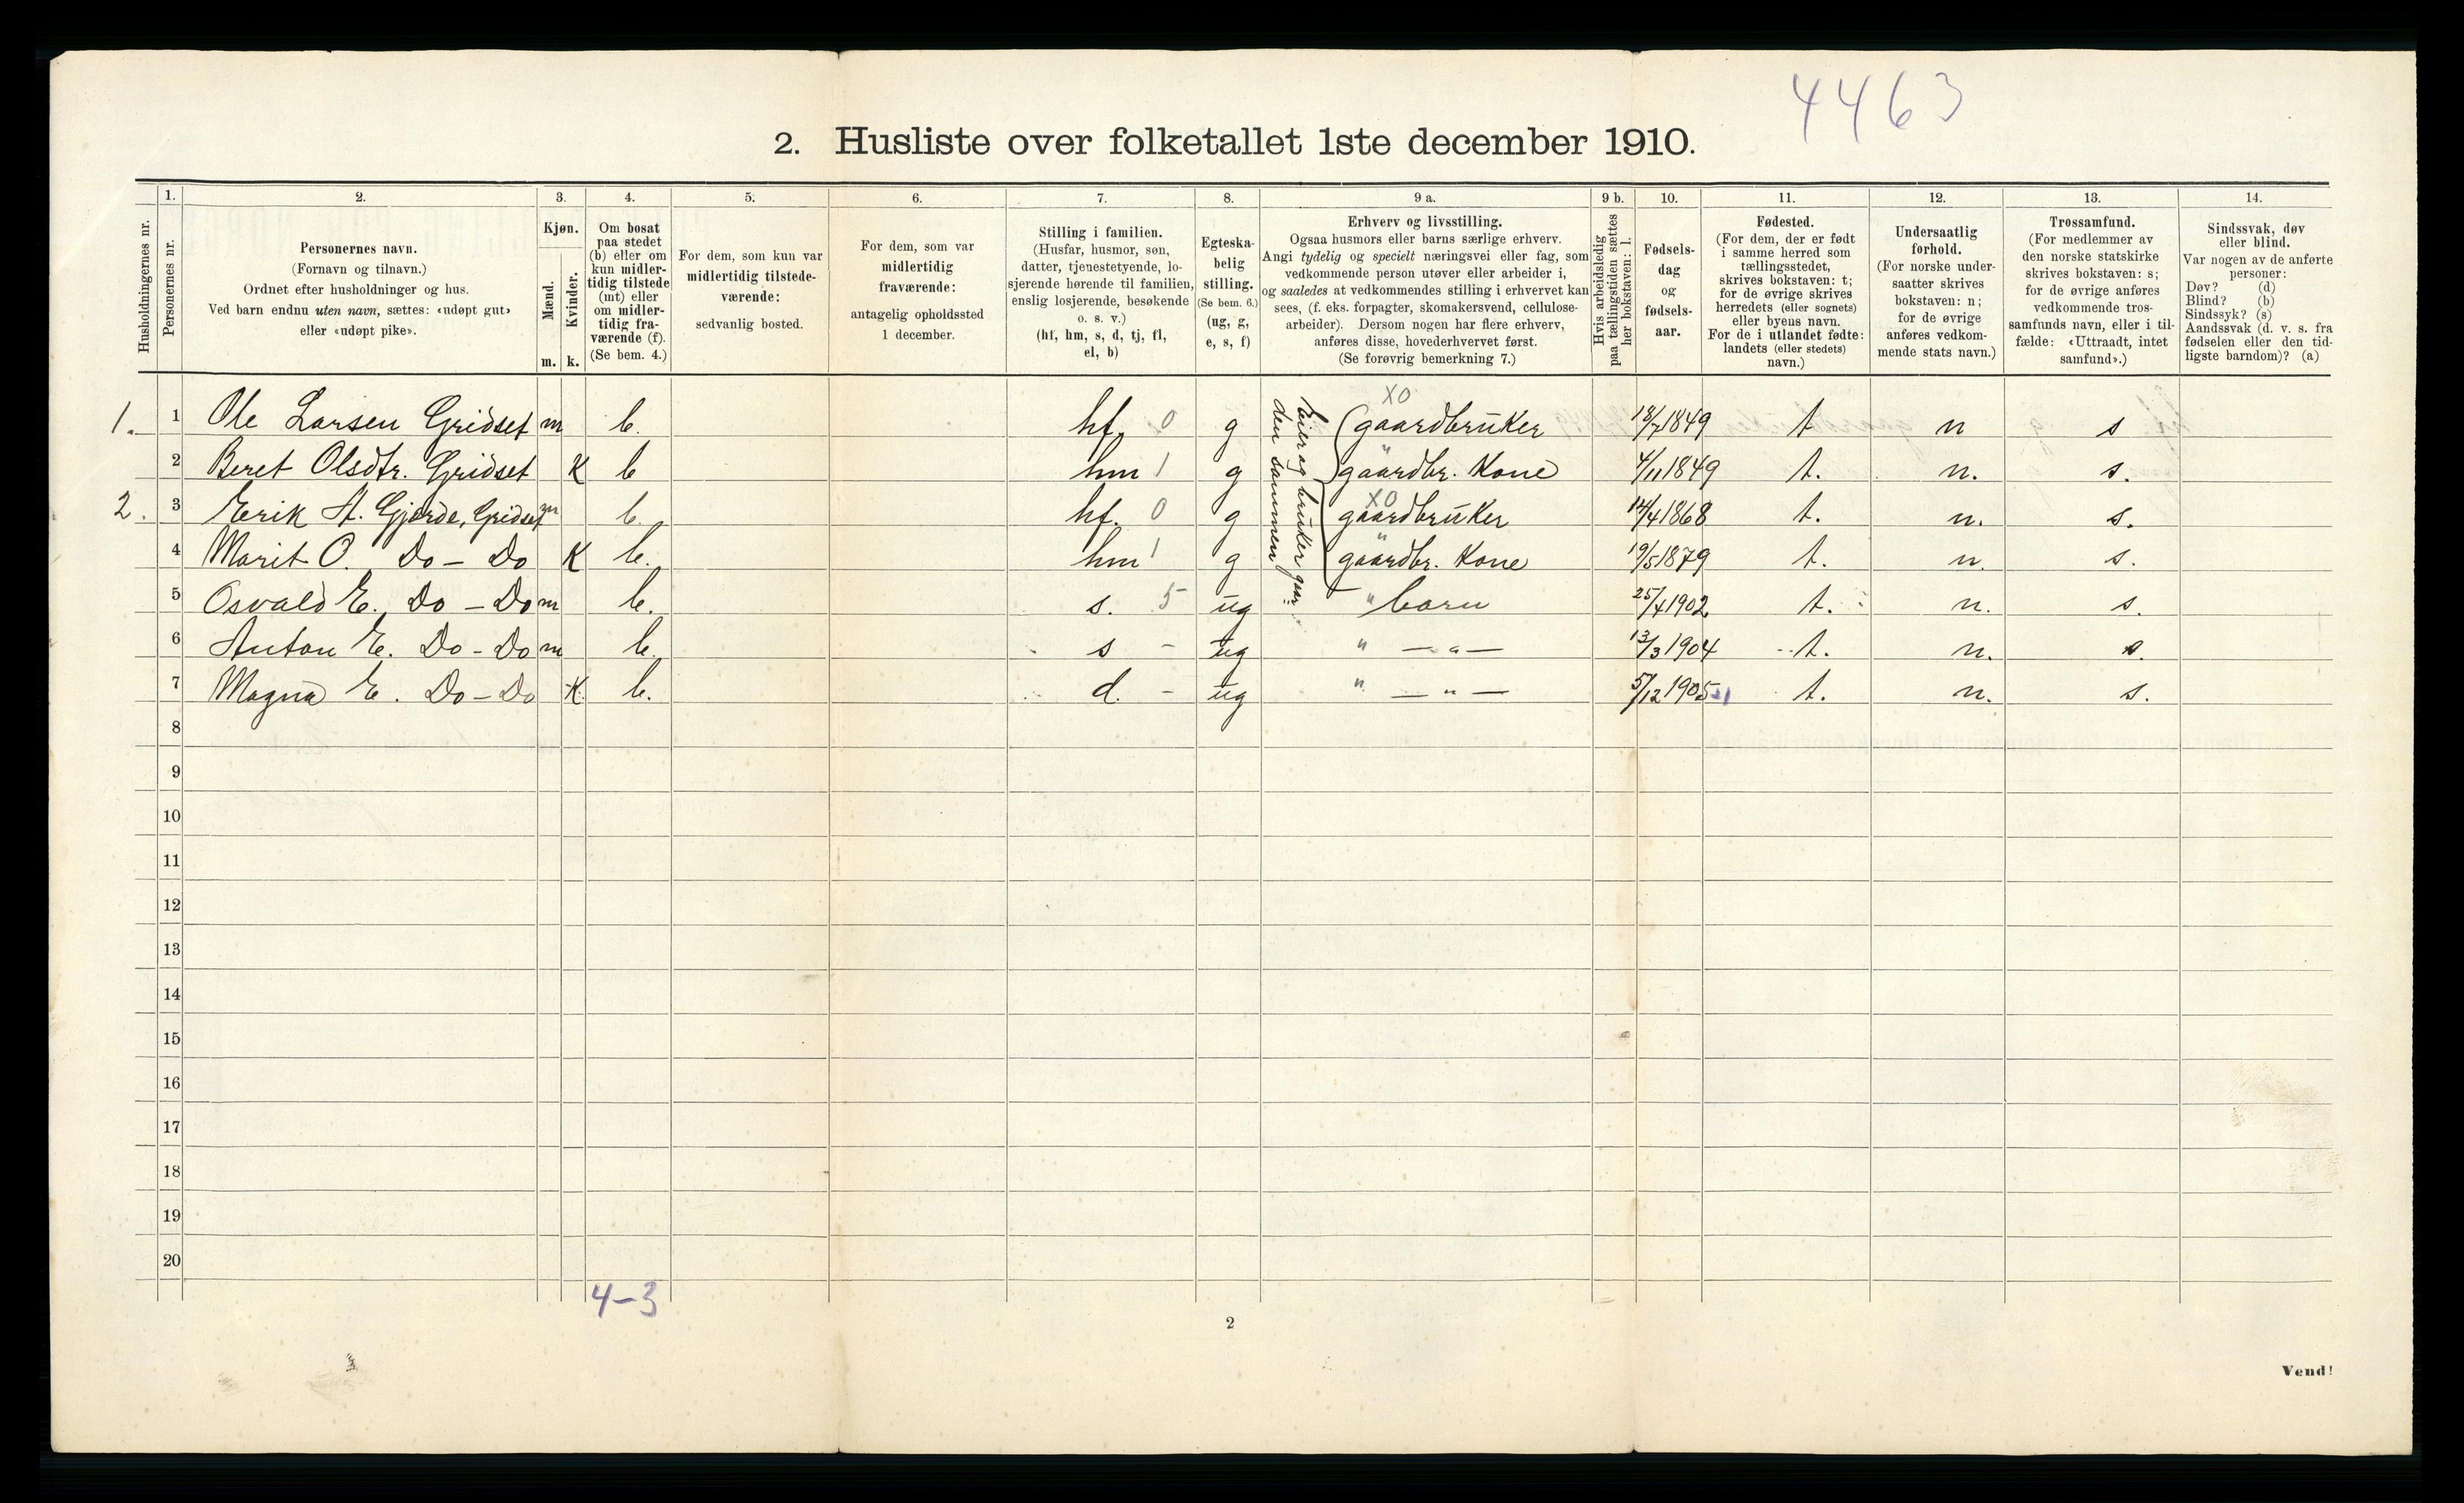 4463
2. Husliste over folketallet 1ste december 1910.
Husholdningernes nr.
1.
Personernes nr.
2.
Personernes navn.
(Fornavn og tilnavn.)
Ordnet efter husholdninger og hus.
Ved barn endnu uten navn, sættes: «udøpt gut»
eller «udøpt pike».
3.
Kjøn.
Mænd.
Kvinder.
m. k.
4.
Om bosat
paa stedet
(b) eller om
kun midler-
tidig tilstede
(mt) eller
om midler-
tidig fra-
værende (f).
(Se bem. 4.)
5.
For dem, som kun var
midlertidig tilstede-
værende:
sedvanlig bosted.
6.
For dem, som var
midlertidig
fraværende:
antagelig opholdssted
1 december.
7.
Stilling i familien.
(Husfar, husmor, søn,
datter, tjenestetyende, lo-
sjerende hørende til familien,
enslig losjerende, besøkende
o. s. v.)
(hf, hm, s, d, tj, fl,
el, b)
8.
Egteska-
belig
stilling.
(Se bem. 6.)
(ug, g,
e, s, f)
9 a.
Erhverv og livsstilling.
Ogsaa husmors eller barns særlige erhverv.
Angi tydelig og specielt næringsvei eller fag, som
vedkommende person utøver eller arbeider i,
og saaledes at vedkommendes stilling i erhvervet kan
sees, (f. eks. forpagter, skomakersvend, cellulose-
arbeider). Dersom nogen har flere erhverv,
anføres disse, hovederhvervet først.
(Se forøvrig bemerkning 7.)
9 b.
Hvis arbeidsledig
paa tællingstiden sættes
her bokstaven: l.
10.
Fødsels-
dag
og
fødsels-
aar.
11.
Fødested.
(For dem, der er født
i samme herred som
tællingsstedet,
skrives bokstaven: t;
for de øvrige skrives
herredets (eller sognets)
eller byens navn.
For de i utlandet fødte:
landets (eller stedets)
navn.)
12.
Undersaatlig
forhold.
(For norske under-
saatter skrives
bokstaven: n;
for de øvrige
anføres vedkom-
mende stats navn.)
13.
Trossamfund.
(For medlemmer av
den norske statskirke
skrives bokstaven: s;
for de øvrige anføres
vedkommende tros-
samfunds navn, eller i til-
fælde: «Uttraadt, intet
samfund».)
14.
Sindssvak, døv
eller blind.
Var nogen av de anførte
personer:
Døv? (d)
Blind? (b)
Sindssyk? (s)
Aandssvak (d. v. s. fra
fødselen eller den tid-
ligste barndom)? (a)
Eier og bruker gaar-
den sammen
XO
1. 1 Ole Larsen Gridset m b. hf. 0 g gaardbruker 18/7 1849 t n s
2 Beret Olsdtr. Gridset K b hm 1 g gaardbr. Kone 4/11 1849 t. n. s.
XO
2. 3 Erik A. Gjerde, Gridset m b. hf. 0 g gaardbruker 14/4 1868 t. n. s.
4 Marit O. Do - Do K b. hm 1 g gaardbr. Kone 19/5 1879 t. n. s.
5 Osvald E. Do - Do m b. s. 5 ug " barn 25/4 1902 t. n. s.
6 Anton E. Do - Do m b. s - ug " — " — 13/3 1904 t. n. s.
7 Magna E. Do - Do K. b. d. - ug " — " — 5/12 1905 t. n. s.
8
9
10
11
12
13
14
15
16
17
18
19
20
4-3
2
Vend!